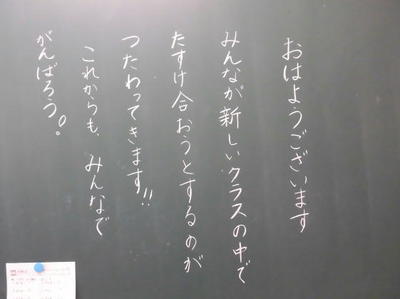 おはようございます
みんなが新しいクラスの中で
たすけ合おうとするのが
つたわってきます!!
これからも、みんなで
がんばろう。